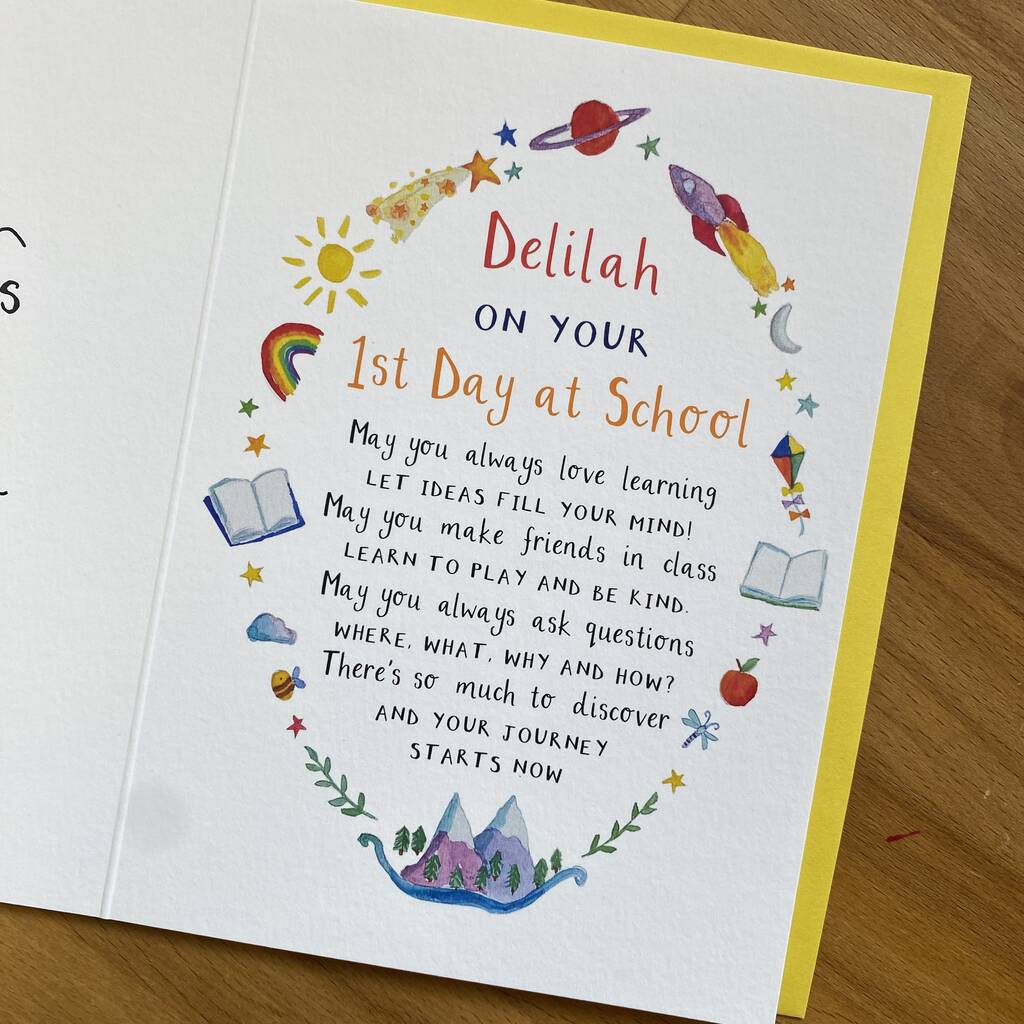 Delilah
ON YOUR
1st Day at School
May you always love learning
LET IDEAS FILL YOUR MIND!
May you make friends in class
LEARN TO PLAY AND BE KIND.
May you always ask questions
WHERE, WHAT, WHY AND HOW?
There's so much to discover
AND YOUR JOURNEY
STARTS NOW